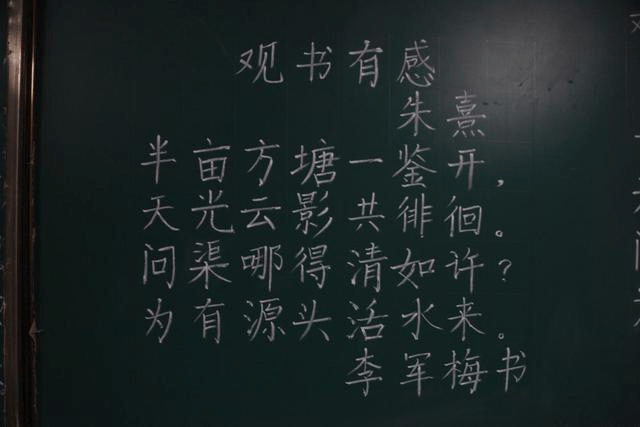 观书有感
朱熹
半亩方塘一鉴开，
天光云影共徘徊。
问渠哪得清如许？
为有源头活水来。
李军梅书